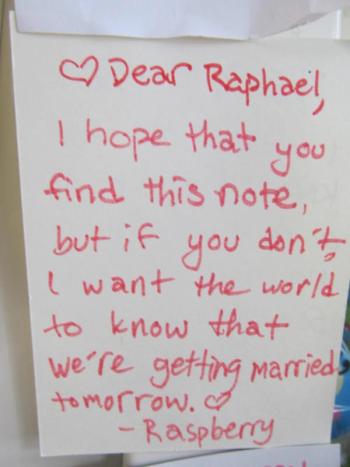 ♡ Dear Raphael,
I hope that you
find this note,
but if you don't,
I want the world
to know that
we're getting married
tomorrow. ♡
- Raspberry